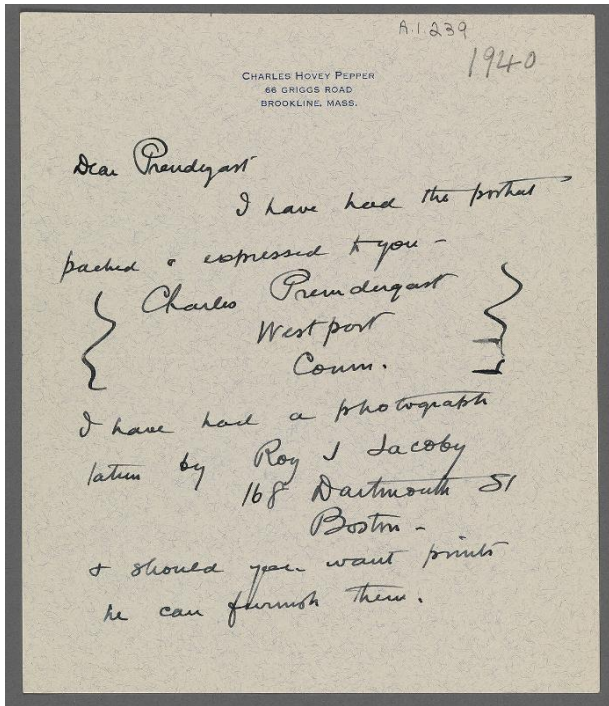 A.1.239
1940
CHARLES HOVEY PEPPER
66 GRIGGS ROAD
BROOKLINE, MASS.
Dear Prendergast
I have had the portrait
packed & expressed to you –
Charles Prendergast
Westport
Conn.
I have had a photograph
taken by Roy J Jacoby
168 Dartmouth St
Boston –
& should you want prints
he can furnish them.